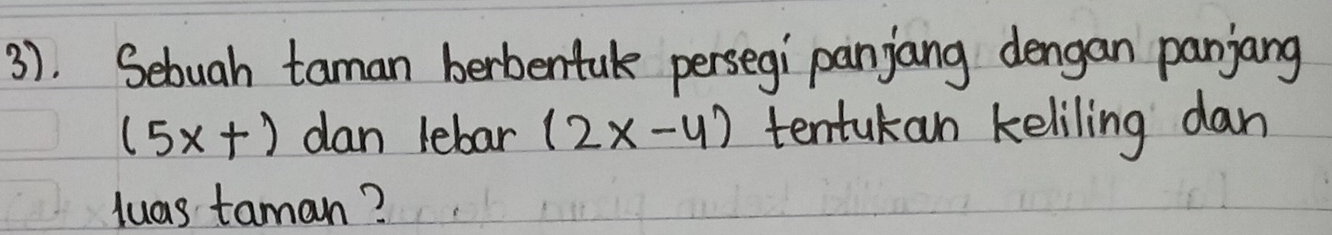 3). Sebuah taman berbentuk persegi panjang dengan panjang
(5x+) dan lebar (2x-4) tentukan keliling dan
luas taman?